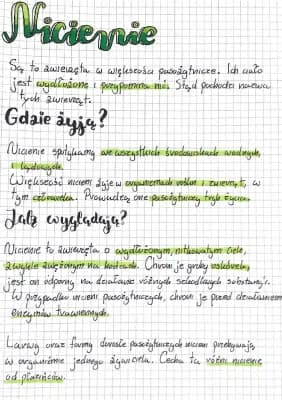 Nicienie
Są to zwierzęta w większości pasożytnicze. Ich ciało
jest wydłużone i przypomina nić. Stąd pochodzi nazwa
tych zwierząt.
Gdzie żyją?
Nicienie spotykamy we wszystkich środowiskach wodnych
i lądowych.
Większość nicieni żyje w organizmach roślin i zwierząt, w
tym człowieka. Prowadzą one pasożytniczy tryb życia.
Jak wyglądają?
Nicienie to zwierzęta o wydłużonym, nitkowatym ciele,
zwykle zwężonym na końcach. Chroni je gruby oskórek,
jest on odporny na działanie różnych szkodliwych substancji.
W przypadku nicieni pasożytniczych, chroni je przed działaniem
enzymów trawiennych.
Larwy oraz formy dorosłe pasożytniczych nicieni przebywają
w organizmie jednego żywiciela. Cecha ta różni nicienie
od płazińców.